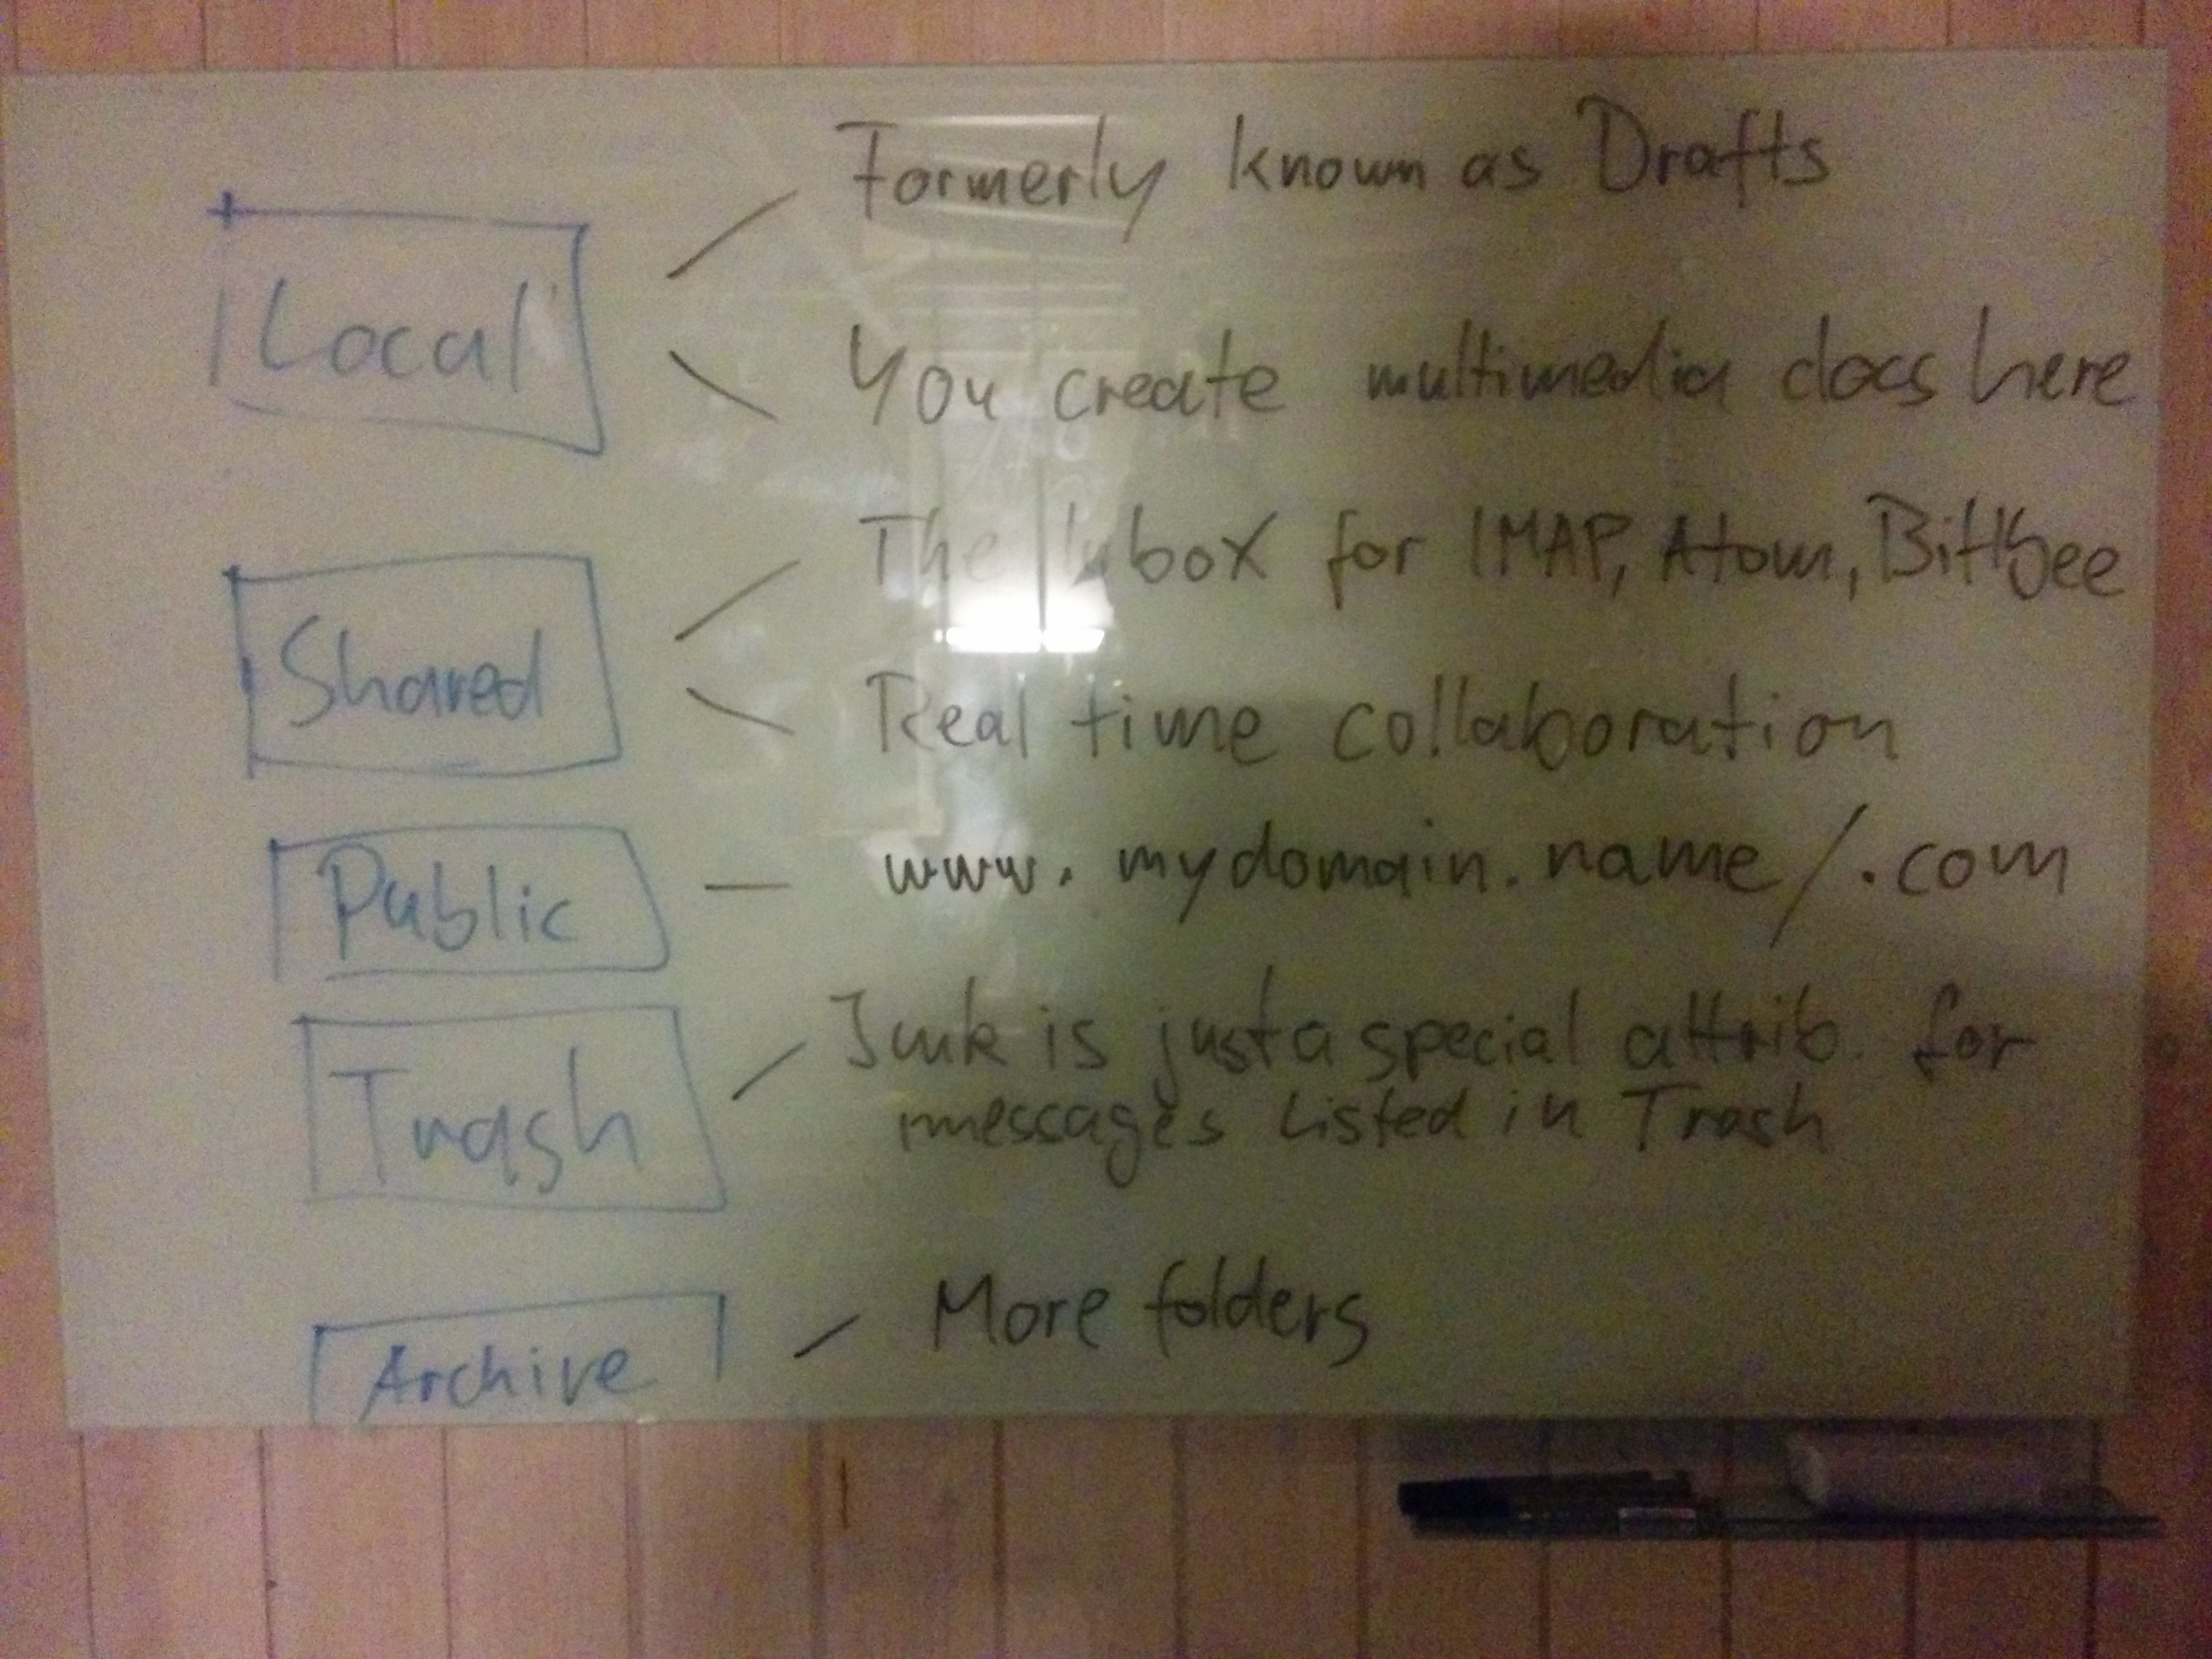 Formerly known as Drafts
Local
You create multimedia docs here
The Inbox for IMAP, Atom, BitlBee
Shared
Real time collaboration
Public
www.mydomain.name/.com
Junk is just a special attrib. for
messages listed in Trash
Trash
More folders
Archive